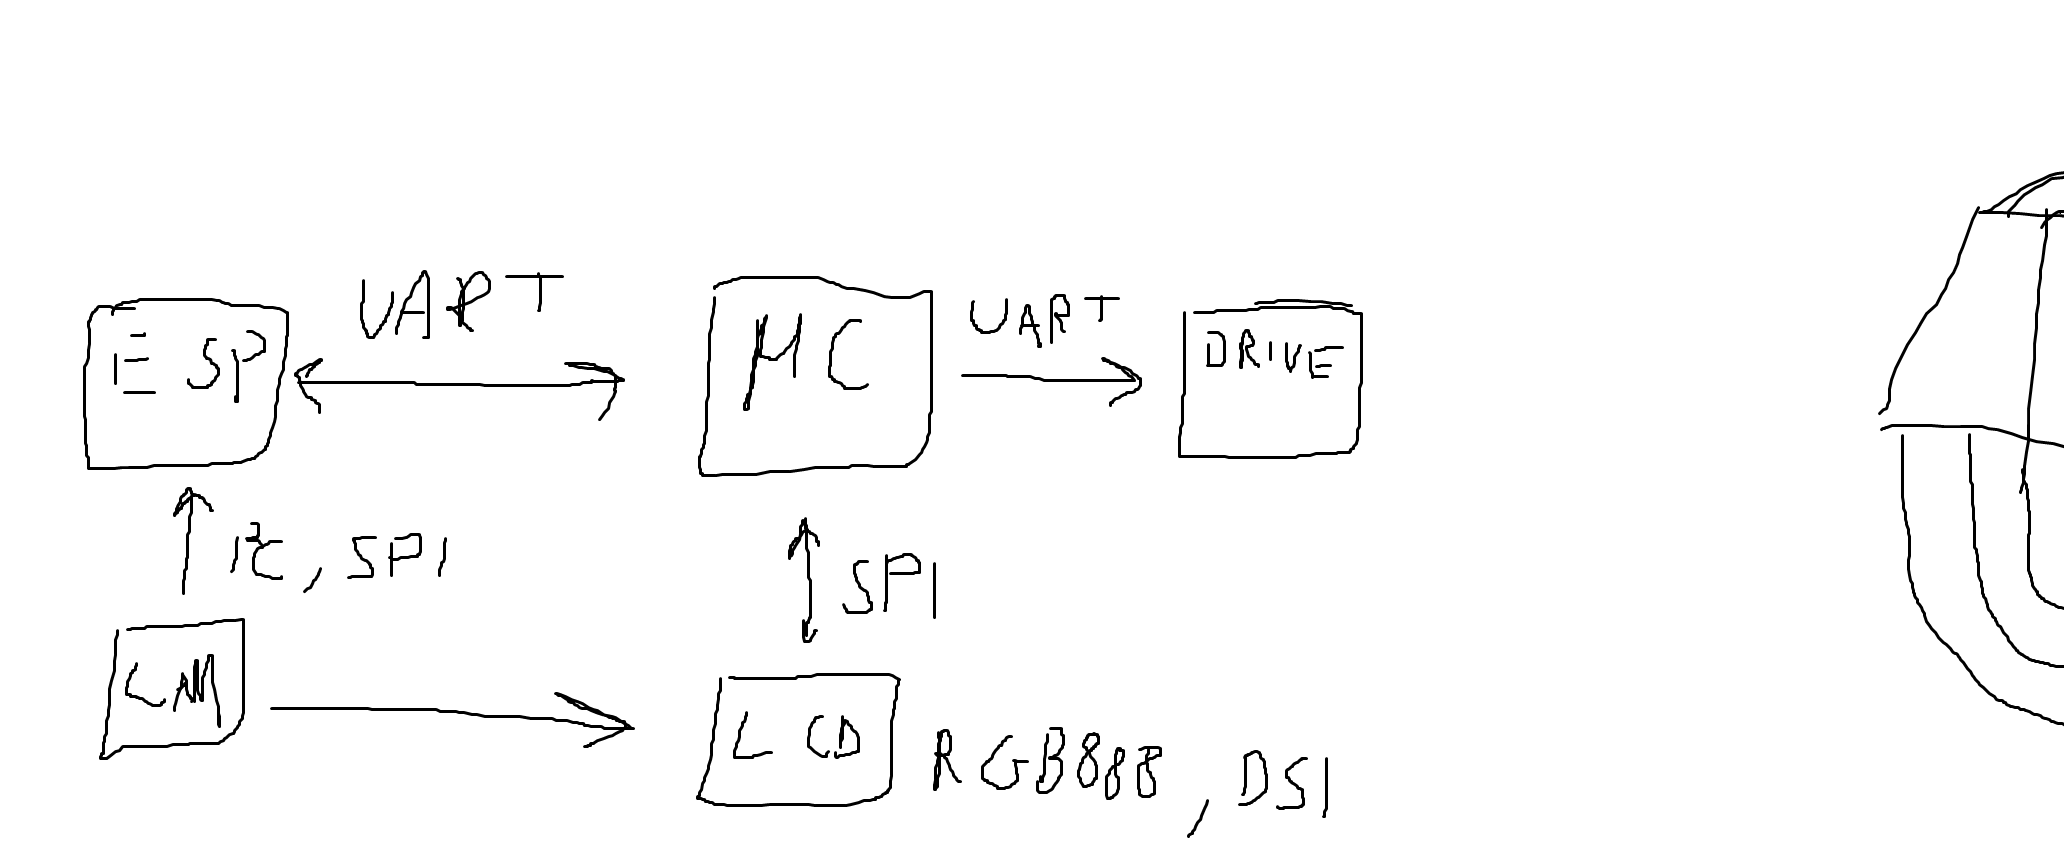 UART
ESP
µC
UART
DRIVE
I²C, SPI
SPI
CAM
LCD
RGB888, DSI